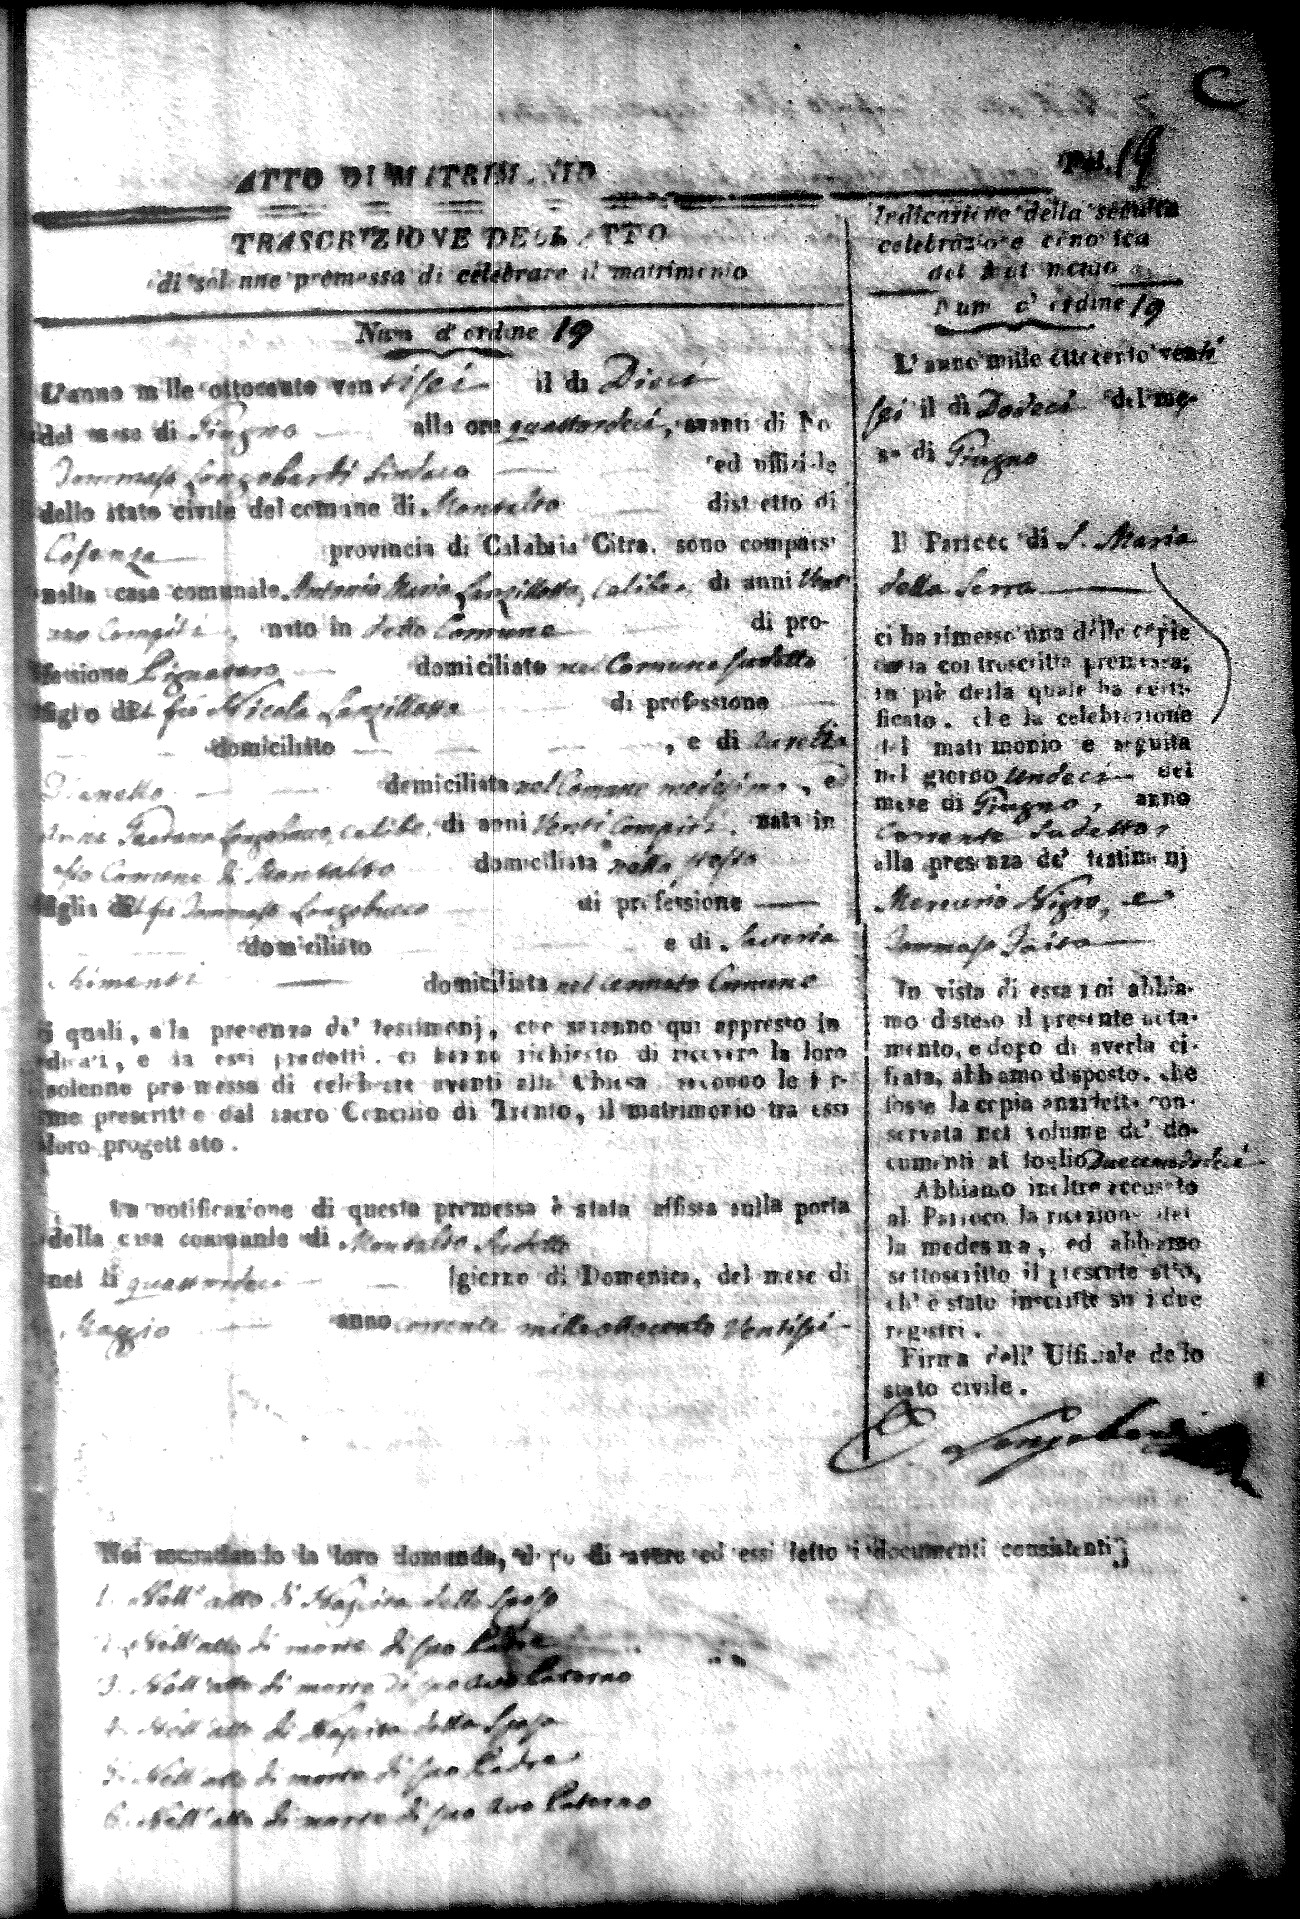 C
Fol. 19
ATTO DI MATRIMONIO
TRASCRIZIONE DELL'ATTO
di solenne promessa di celebrare il matrimonio
Num d'ordine 19
L'anno mille ottocento ventisei il di Dieci
del mese di Giugno alle ore quattordeci, avanti di No
Tommaso Longobardi Sindaco ed uffiziale
dello stato civile del comune di Montalto distretto di
Cosenza provincia di Calabria Citra, sono comparsi
nella casa comunale Antonio Maria Lanzillotta, celibe, di anni Vent
uno Compiti, nato in detto Comune di pro-
fessione domiciliato nel Comune sudetto
figlio del fu Nicola Lanzillotta di professione
domiciliato , e di
domiciliata nel Comune medesimo, e
Gaetana Longobucco, celibe, di anni Venti Compiti, nata in
Comune di Montalto domiciliata nello stesso
figlia del fu Tommaso Longobucco di professione
domiciliato e di Saveria
Chimenti domiciliata nel cennato Comune
i quali, alla presenza de' testimonj, che saranno qui appresso in
dicati, e da essi prodotti, ci hanno richiesto di ricevere la loro
solenne promessa di celebrare avanti alla Chiesa, secondo le for-
me prescritte dal sacro Concilio di Trento, il matrimonio tra essi
loro progettato.
La notificazione di questa promessa è stata affissa sulla porta
della casa comunale di Montalto sudetto
nel li quattordeci giorno di Domenica, del mese di
Maggio anno corrente milleottocento Ventisei
Indicazione della seguita
celebrazione canonica
del matrimonio
Num d'ordine 19
L'anno mille ottocento venti
sei il dì Dodeci del me-
se di Giugno
Il Parroco di S. Maria
della Serra
ci ha rimesso una delle copie
della controscritta promessa;
in piè della quale ha certi-
ficato, che la celebrazione
del matrimonio è seguita
nel giorno Undeci del
mese di Giugno, anno
Corrente Sudetto,
alla presenza de' testimonj
Mercurio Nigro, e
Tommaso
In vista di essa noi abbia-
mo disteso il presente nota-
mento, e dopo di averla ci-
frata, abbiamo disposto, che
fosse la copia anzidetta con-
servata nel volume de' do-
cumenti al foglio Duecentododeci
Abbiamo inoltre accusato
al Parroco la ricezione del
la medesima, ed abbiamo
sottoscritto il presente atto,
ch'è stato inscritto su i due
registri.
Firma dell' Uffiziale dello
stato civile.
Longobardi
Noi secondando la loro domanda, dopo di avere ad essi letto i documenti consistenti
1. Nell'atto di Nascita dello Sposo
2. Nell'atto di morte di suo Padre
3. Nell'atto di morte di suo Avo Paterno
4. Nell'atto di Nascita della Sposa
5. Nell'atto di morte di suo Padre
6. Nell'atto di morte di suo Avo Paterno